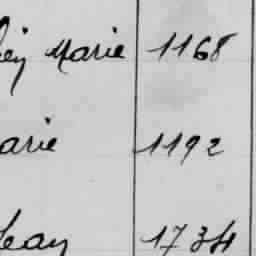 Marie 1168
arie 1192
Jean 1734